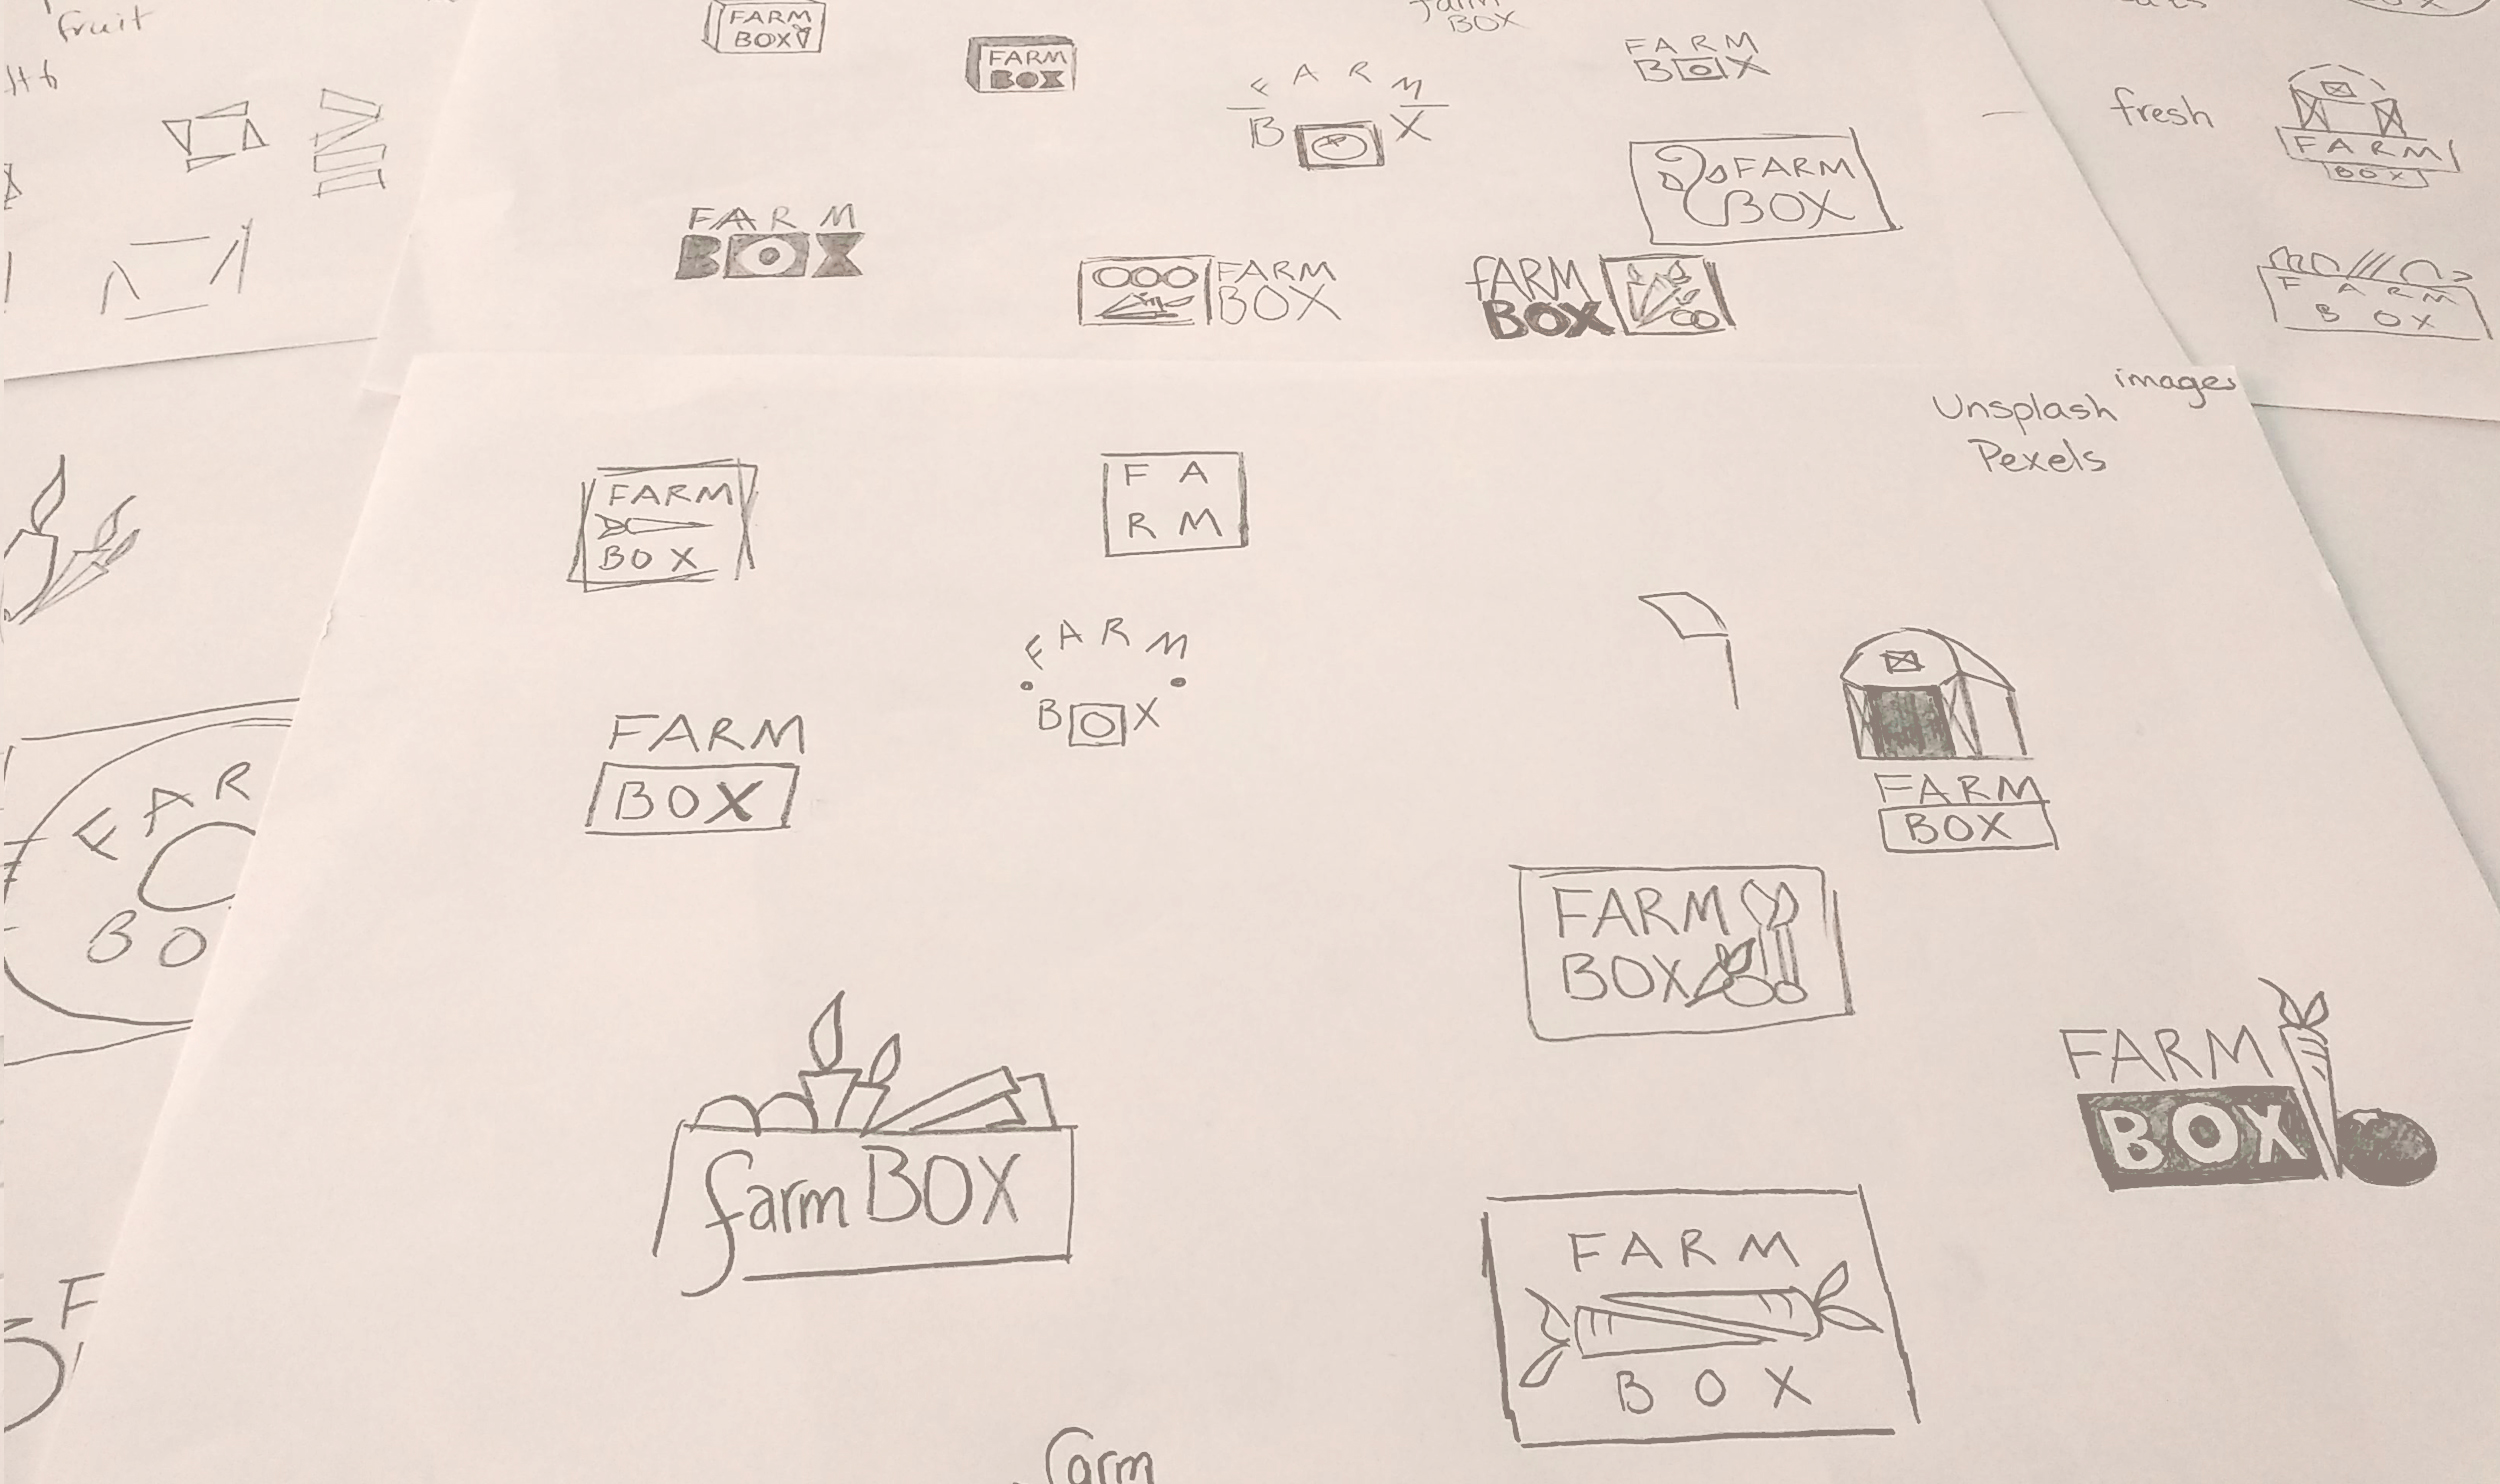 fruit
FARM
BOX
FARM
BOX
FARM
BOX
farm
BOX
FARM
BOX
FARM
BOX
FARM
BOX
FARM
BOX
fARM
BOX
fresh
FARM
BOX
FARM
BOX
images
Unsplash
Pexels
FARM
BOX
F A
R M
FARM
BOX
FARM
BOX
FARM
BOX
FAR
BO
FARM
BOX
FARM
BOX
farm BOX
FARM
BOX
F
farm